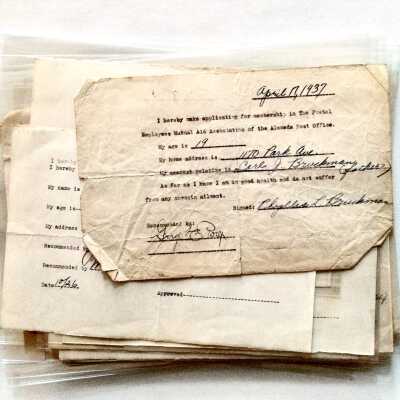 April 17, 1937
I hereby make application for membership in The Postal
Employees Mutual Aid Association of the Alameda Post Office.
My age is 19
My home address is Park Ave.
My nearest relative is Bruckman
As far as I know I am in good health and do not suffer
from any chronic ailment.
Signed: Phyllis L. Bruckman
Recommended by:
I hereby
I hereby
My name is
My age is
My address
Recommended
Recommended by
Date
Approved